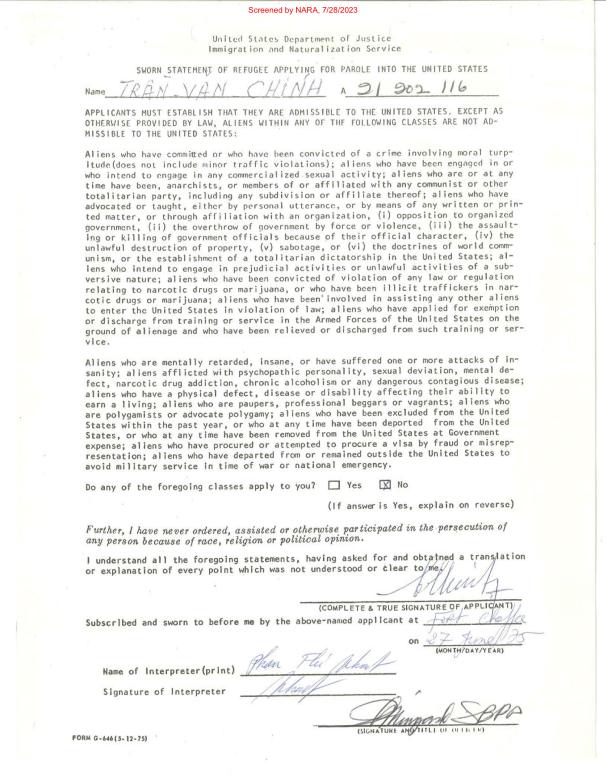 Screened by NARA, 7/28/2023
United States Department of Justice
Immigration and Naturalization Service
SWORN STATEMENT OF REFUGEE APPLYING FOR PAROLE INTO THE UNITED STATES
Name TRẦN VAN CHINH A 21 902 116
APPLICANTS MUST ESTABLISH THAT THEY ARE ADMISSIBLE TO THE UNITED STATES. EXCEPT AS
OTHERWISE PROVIDED BY LAW, ALIENS WITHIN ANY OF THE FOLLOWING CLASSES ARE NOT AD-
MISSIBLE TO THE UNITED STATES:
Aliens who have committed or who have been convicted of a crime involving moral turp-
itude(does not include minor traffic violations); aliens who have been engaged in or
who intend to engage in any commercialized sexual activity; aliens who are or at any
time have been, anarchists, or members of or affiliated with any communist or other
totalitarian party, including any subdivision or affiliate thereof; aliens who have
advocated or taught, either by personal utterance, or by means of any written or prin-
ted matter, or through affiliation with an organization, (i) opposition to organized
government, (ii) the overthrow of government by force or violence, (iii) the assault-
ing or killing of government officials because of their official character, (iv) the
unlawful destruction of property, (v) sabotage, or (vi) the doctrines of world comm-
unism, or the establishment of a totalitarian dictatorship in the United States; al-
iens who intend to engage in prejudicial activities or unlawful activities of a sub-
versive nature; aliens who have been convicted of violation of any law or regulation
relating to narcotic drugs or marijuana, or who have been illicit traffickers in nar-
cotic drugs or marijuana; aliens who have been involved in assisting any other aliens
to enter the United States in violation of law; aliens who have applied for exemption
or discharge from training or service in the Armed Forces of the United States on the
ground of alienage and who have been relieved or discharged from such training or ser-
vice.
Aliens who are mentally retarded, insane, or have suffered one or more attacks of in-
sanity; aliens afflicted with psychopathic personality, sexual deviation, mental de-
fect, narcotic drug addiction, chronic alcoholism or any dangerous contagious disease;
aliens who have a physical defect, disease or disability affecting their ability to
earn a living; aliens who are paupers, professional beggars or vagrants; aliens who
are polygamists or advocate polygamy; aliens who have been excluded from the United
States within the past year, or who at any time have been deported from the United
States, or who at any time have been removed from the United States at Government
expense; aliens who have procured or attempted to procure a visa by fraud or misrep-
resentation; aliens who have departed from or remained outside the United States to
avoid military service in time of war or national emergency.
Do any of the foregoing classes apply to you? Yes X No
(If answer is Yes, explain on reverse)
Further, I have never ordered, assisted or otherwise participated in the persecution of
any person because of race, religion or political opinion.
I understand all the foregoing statements, having asked for and obtained a translation
or explanation of every point which was not understood or clear to me.
(COMPLETE & TRUE SIGNATURE OF APPLICANT)
Subscribed and sworn to before me by the above-named applicant at Fort Chaffee
on 27 June 75
(MONTH/DAY/YEAR)
Name of Interpreter(print) Phan
Signature of Interpreter
(SIGNATURE AND TITLE OF OFFICER)
FORM G-646(5-12-75)